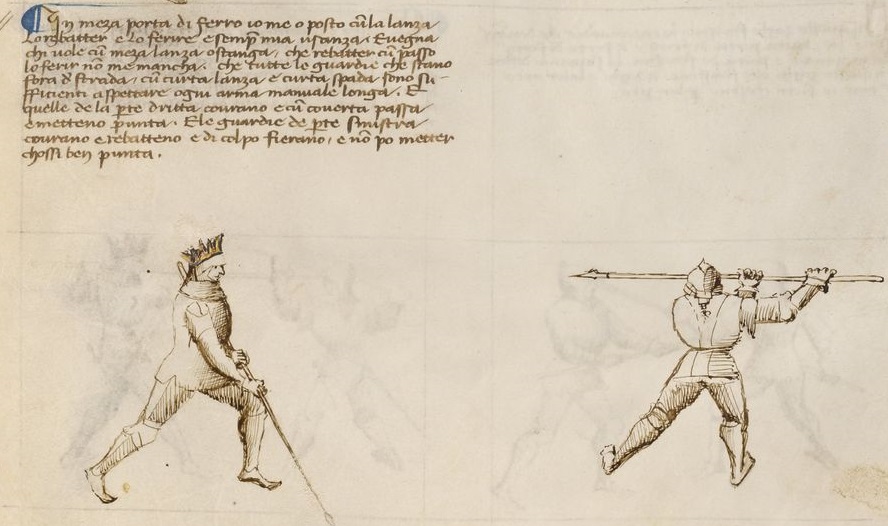 In meza porta di ferro io me o posto cū la lanza
Lo rebatter e lo ferire e semp mia usanza. E vegna
chi vole cū meza lanza o stanga, che rebatter cū passo
lo ferir nō me mancha. Che tutte le guardie che stano
fora d' strada, cū curta lanza e curta spada sono su-
fficienti aspettare ogni arma manuale longa. E
quelle de la pte dritta covrano e cū coverta passa
e metteno punta. E le guardie de pte sinistra
covrano e rebatteno e di colpo fierano, e nō po metter
chossi ben punta.